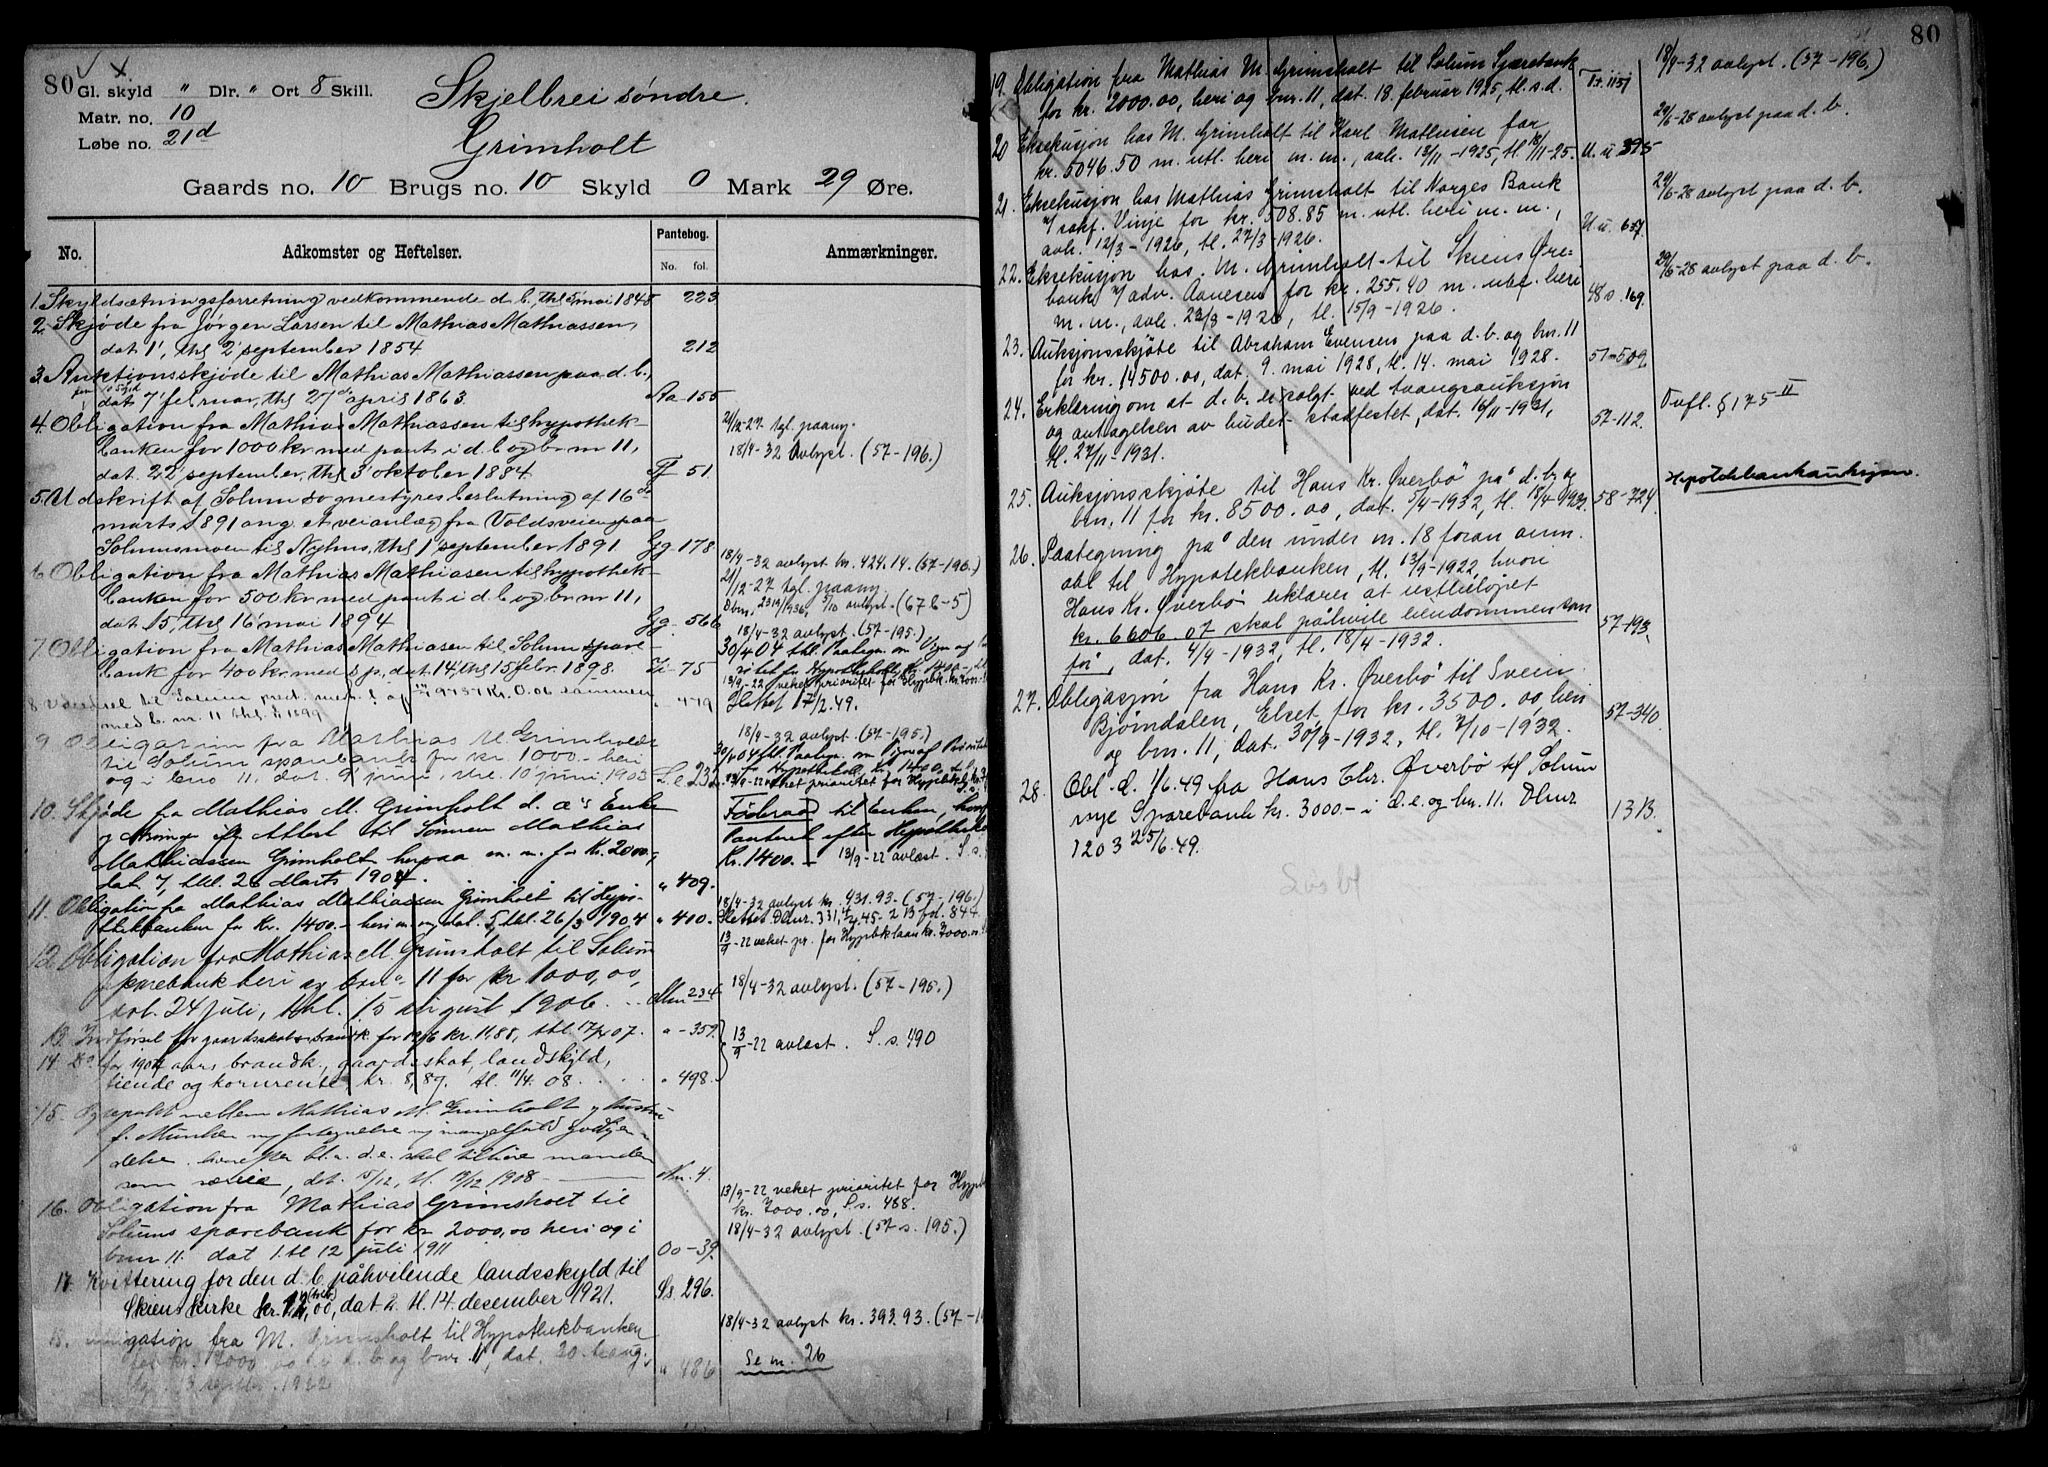 80
Gl. skyld " Dlr. " Ort 8 Skill.
Matr. no. 10
Løbe no. 21d
Skjelbrei søndre.
Grimholt
Gaards no. 10 Brugs no. 10 Skyld 0 Mark 29 Øre.
No. Adkomster og Heftelser. Pantebog. No. fol. Anmærkninger.
1. Skyldsætningsforretning vedkommende d. b. thl mai 1848 223
2. Skjøde fra Jørgen Larsen til Mathias Mathiassen,
dat 1', thl 2' september 1854 212
3. Auktionsskjøde til Mathias Mathiassen paa d. b.,
dat 7' februar, thl 27' april 1863. Aa-155
4. Obligation fra Mathias Mathiassen til hypothek-
banken for 1000 kr med pant i d. b og br nr 11,
dat. 22' september, thl 3' oktober 1884. Ff 51.
21/12-27 tgl. paany.
18/4-32 avlyst. (57-196.)
5. Udskrift af Solum sognestyres beslutning af 16de
marts 1891 ang. et veianlæg fra Voldsveien paa
Solumsmoen til Nyhus, thl 1' september 1891 Gg. 178
6. Obligation fra Mathias Mathiasen til hypothek-
banken for 500 kr med pant i d. b og br nr 11,
dat 15', thl 16' mai 1894 Gg. 566
18/4-32 avlyst kr. 424.14. (57-196.)
21/12-27 tgl. paany.
avlyst. (67 b-5)
7. Obligation fra Mathias Mathiasen til Solum spare-
bank for 400 kr. med s p., dat. 14', thl 15' febr. 1898. 75
18/4-32 avlyst. (57-195.)
30/4 04 thl. Paategn. om
13/9-22 veket prioritet for Hypbk. kr.
Slettet 17/2.49.
8. til Solum
med b. nr. 11 thl. 1899 " 479
9. Obligation fra Mathias M. Grimholt
til Solum sparebank for kr. 1000.- heri
og i bno 11, dat. 9' juni, thl. 10' juni 1903 L.c 232
18/4-32 avlyst. (57-195.)
30/4 04 thl. Paategn. om
for Hypothekbk. kr. 1400.
13/9-22 veket prioritet for Hypbk.
10. Skjøde fra Mathias M. Grimholt d. æ's Enke
til Sønnen Mathias
Mathiassen Grimholt herpaa m. m. for Kr. 2000.-,
dat 7, thl. 26 Marts 1904. " 409.
Føderaad til Enken,
efter Hypothek
Kr. 1400.- 13/9-22 avlæst. S. s.
11. Obligation fra Mathias Mathiassen Grimholt til Hypo-
thekbanken for Kr. 1400.- heri m. m. dat. 5, thl. 26/3 1904 " 410.
18/4-32 avlyst kr. 931.93. (57-196.)
Slettet Dbnr. 45- 2 B fol. 844.
13/9-22 veket pr. for Hypbklaan kr. 7000.
12. Obligation fra Mathias M. Grimsholt til Solum
sparebank heri og bno 11 for kr 1000,00,
dat. 24 juli, thl. 15 august 1906. Mm 234
18/4-32 avlyst. (57-195.)
13. Indførsel for gaardsskat o. brandk. for 1906 kr. 11.88, thl. 07. " - 357.
14. Do for 1907 aars brandk., gaardsskat, landskyld,
tiende og kornrente kr. 8,87. tl. 11/4. 08. " 498.
13/9-22 avlæst. S. s. 490
15. mellem Mathias M. Grimholt
f. Munken
skal tilhøre manden
som særeie, dat. 5/12, tl. 1908. Nn. 4.
16. Obligation fra Mathias Grimsholt til
Solums sparebank for kr 2000,00 heri og i
bnr 11. dat 1. tl 12 juli 1911 Oo-39.
13/9-22 veket prioritet for Hypb
kr. 7000.00, S.s. 488.
18/4-32 avlyst. (57 s. 195.)
17 Kvittering for den d. b. påhvilende landsskyld til
Skiens kirke kr. 12,00, dat 2. tl. 14. desember 1921. Ss. 296.
18. fra M. Grimsholt til Hypothekbanken
for kr. 7000.00 i d. b og bnr. 11, dat. 20.
13 septbr. 1922 " 486
18/4-32 avlyst kr. 393.93. (57-1
Se nr. 26
80
19. Obligation fra Mathias M. Grimsholt til Solum Sparebank
for kr. 2000.00, heri og bnr. 11, dat. 18. februar 1925, tl. s. d. Tt. 1151
18/4-32 avlyst. (57-196.)
20 Eksekusjon hos M. Grimholt til Karl Mathisen for
kr. 5046.50 m. utl. heri m. m., avh. 13/11-1925, tl. 18/11-25. U. u 395
29/6-28 avlyst paa d. b.
21. Eksekusjon hos Mathias Grimsholt til Norges Bank
v/ sakf. Vinje for kr. 508.85 m. utl. heri m. m.,
avh. 12/3-1926, tl. 27/3-1926. U. u. 637.
29/6-28 avlyst paa d. b.
22. Eksekusjon hos M. Grimholt til Skiens Øre-
bank v/ adv. Aanesen for kr. 255.40 m. utl. heri
m. m., avh. 23/8-1926, tl. 15/9-1926. 48 s. 169.
29/6-28 avlyst paa d. b.
23. Auksjonsskjøte til Abraham Evensen paa d. b. og bnr. 11
for kr. 14500.00, dat. 9. mai 1928, tl. 14. mai 1928. 51-509.
24. Erklæring om at d. b. er solgt ved tvangsauksjon
og antagelsen av budet stadfestet, dat. 16/11-1931,
tl. 27/11-1931. 57-112.
Tvfl. § 175 II
25. Auksjonsskjøte til Hans Kr. Øverbö på d. b. og
bnr. 11 for kr. 8500.00, dat. 5/4-1932, tl. 18/4 1932. 58-724.
26. Paategning på den under nr. 18 foran anm.
obl til Hypotekbanken, tl. 13/9-1922, hvori
Hans Kr. Øverbö erklærer at restbeløpet
kr. 6606.07 skal påhvile eiendommen som
før, dat. 4/4-1932, tl. 18/4-1932. 57-193.
27. Obligasjon fra Hans Kr. Øverbö til Svein
Bjørndalen, Elset, for kr. 3500.00, heri
og bnr. 11, dat. 30/9-1932, tl. 7/10-1932. 57-340.
28. Obl. d. 1/6.49 fra Hans Chr. Øverbö til Solum
nye Sparebank kr. 3000.- i d. e. og bnr. 11. Dbnr
1203 25/6.49. 13 B.